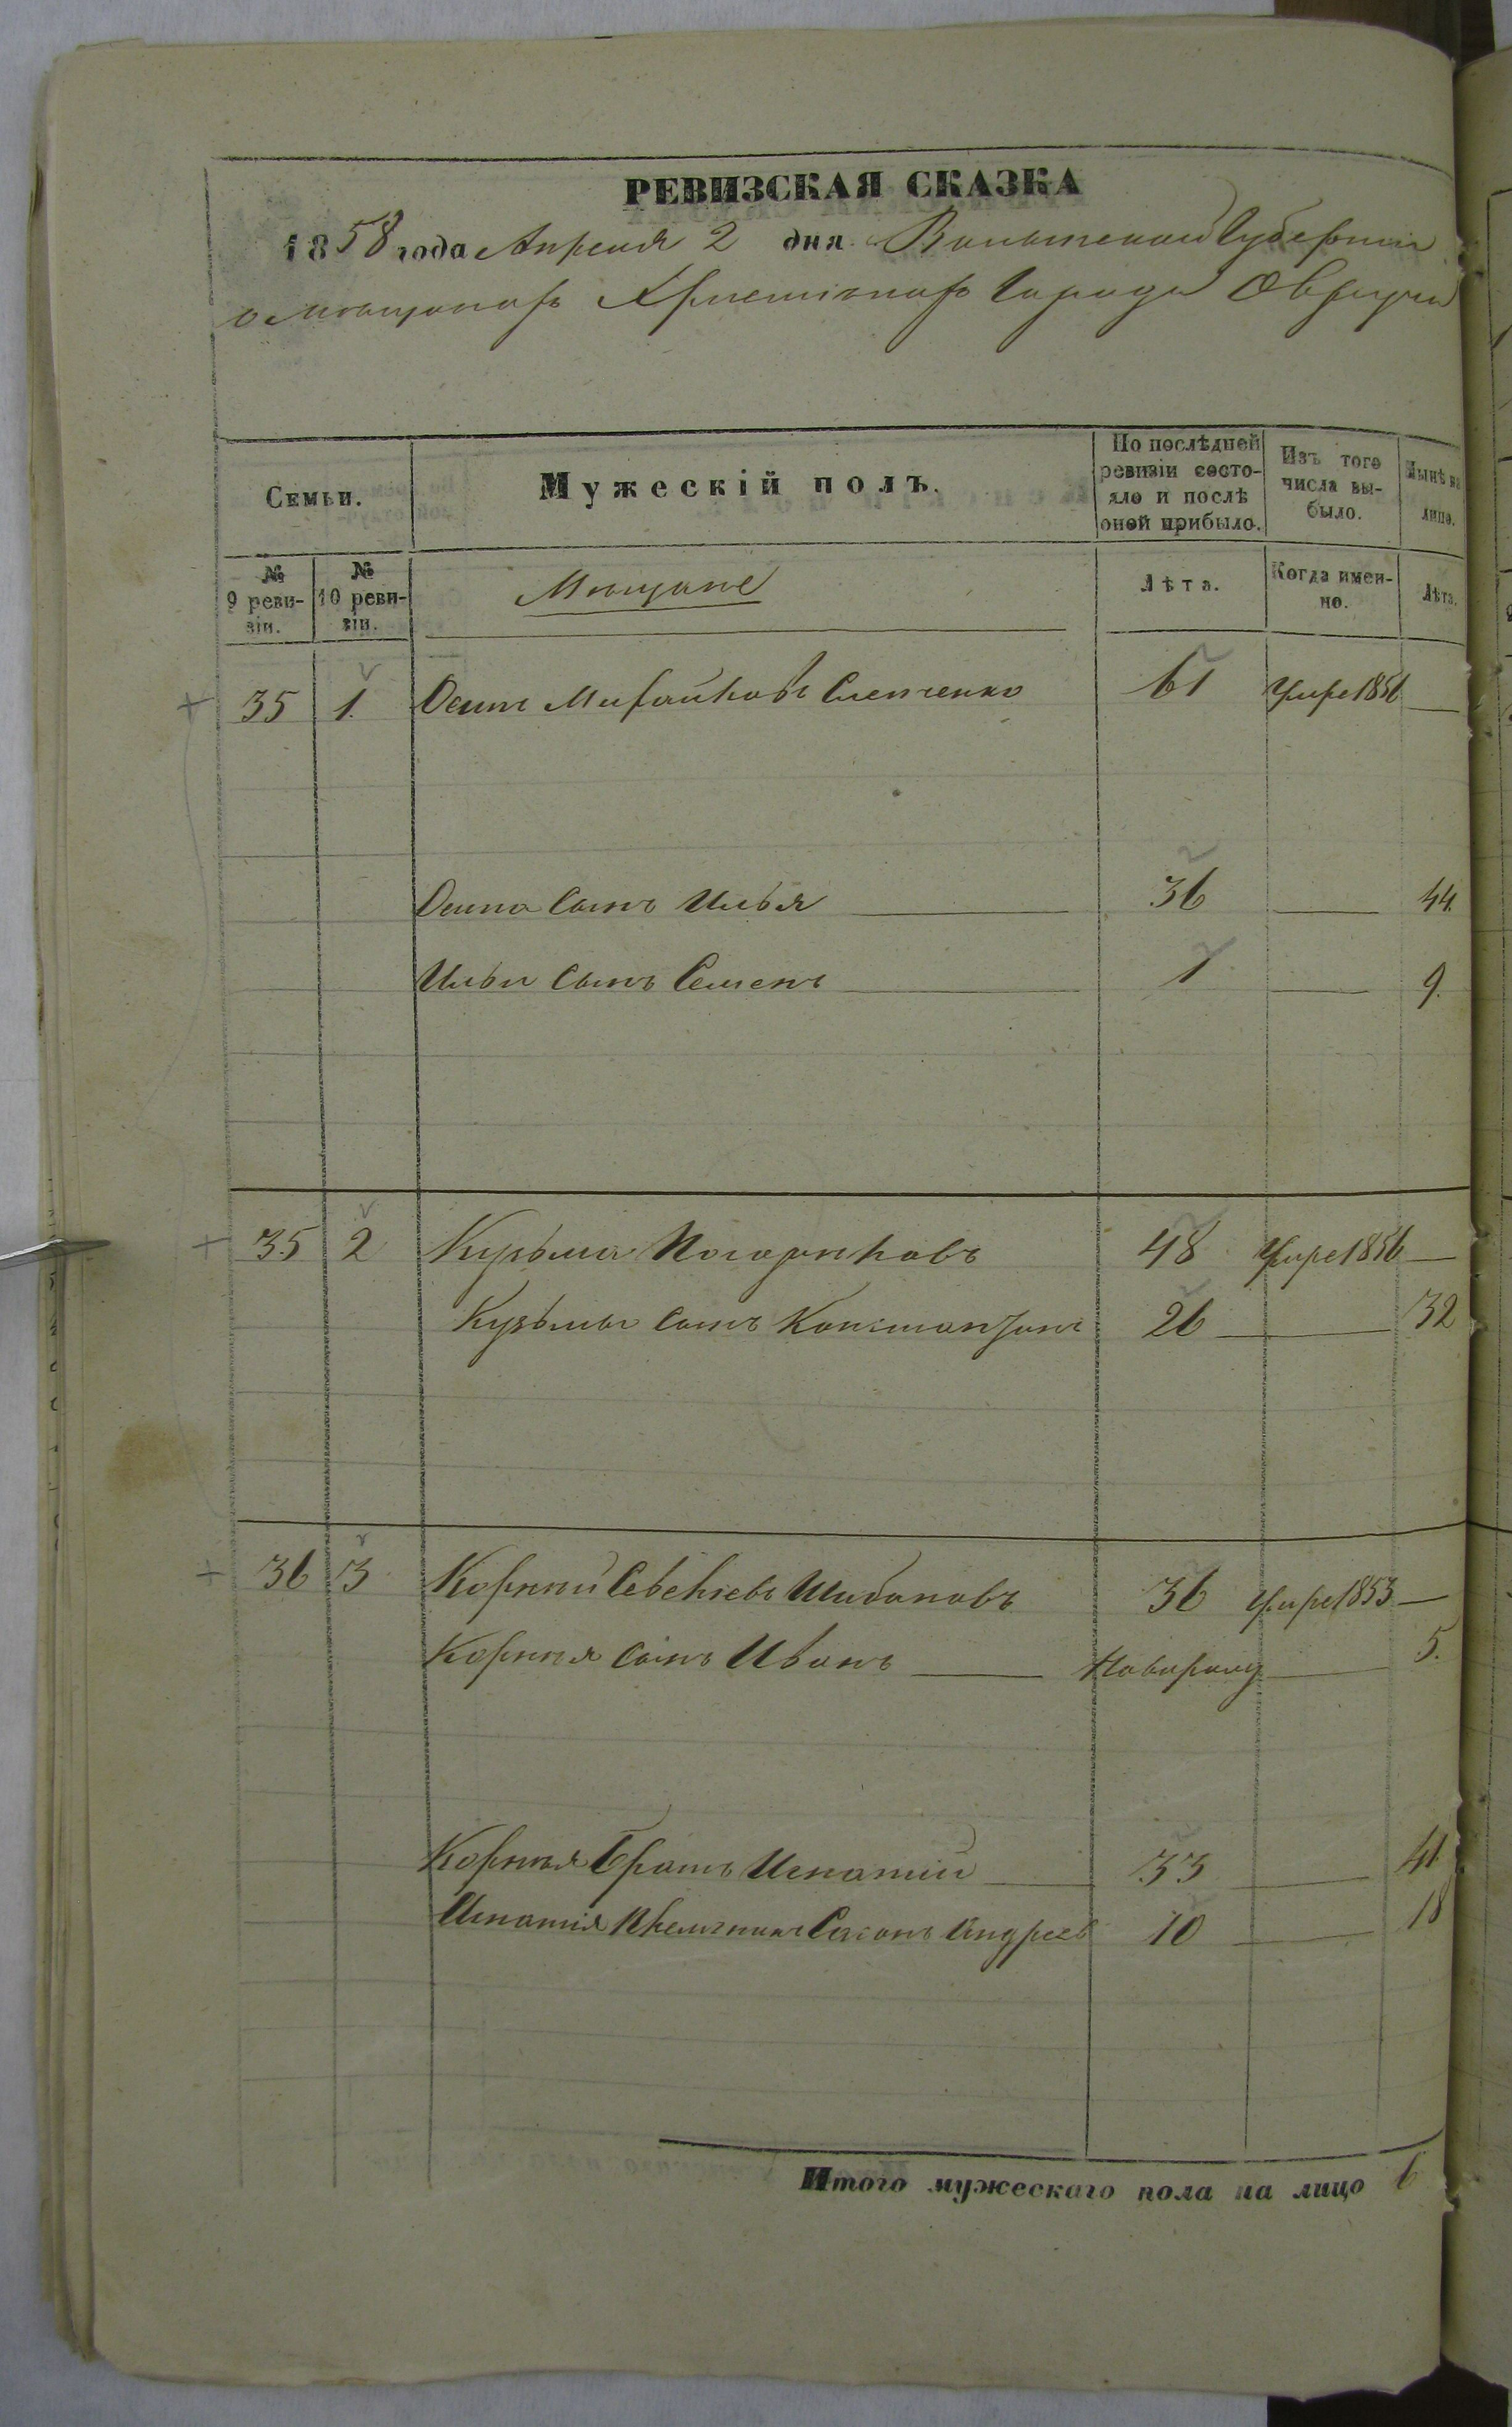 РЕВИЗСКАЯ СКАЗКА
1858 года Апреля 2 дня Волынской Губернии
о мѣщанахъ Христіанахъ Города Овруча
Семьи.
Мужескій полъ.
По послѣдней ревизіи состояло и послѣ оной прибыло.
Изъ того числа выбыло.
Нынѣ на лицо.
№ 9 ревизіи.
№ 10 ревизіи.
Мѣщане
Лѣта.
Когда именно.
Лѣта.
35 1. Осипъ Михайловъ 61 Умре 1856 —
Осипа Сынъ Илья — 36 — 44.
Ильи Сынъ Семенъ — 1 — 9.
35 2 Кузьма 48 Умре 1856 —
Кузьмы Сынъ Константинъ 26 — 32
36 3 Корній Шибановъ 36 Умре 1853 —
Корнія Сынъ Иванъ — Новорожд — 5.
Корнія Братъ Игнатій — 33 — 41.
Игнатія Племянникъ Андреев 10 — 18
Итого мужескаго пола на лицо 6